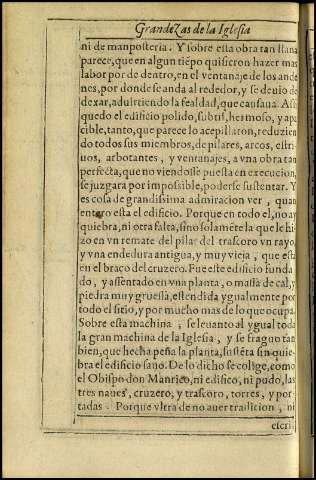 Grandezas de la Iglesia
ni de manposteria. Y sobre esta obra tan llana
parece, que en algun tiẽpo quisieron hazer mas
labor por de dentro, en el ventanaje de los ande
nes, por donde se anda al rededor, y se deuio de
dexar, aduirtiendo la fealdad, que causaua. Assi
quedo el edificio polido, subtil, hermoso, y apa
cible, tanto, que parece lo acepillaron, reduzien
do todos sus miembros, de pilares, arcos, estri
uos, arbotantes, y ventanajes, a vna obra tan
perfecta, que no viendose puesta en execucion,
se juzgara por impossible, poderse sustentar. Y
es cosa de grandissima admiracion ver, quan
entero esta el edificio. Porque en todo el, no ay
quiebra, ni otra falta, sino solamẽte la que le hi
zo en vn remate del pilar del trascoro vn rayo,
y vna endedura antigua, y muy vieja, que esta
en el braço del cruzero. Fue este edificio funda
do, y assentado en vna planta, o massa de cal, y
piedra muy gruessa, estendida ygualmente por
todo el sitio, y por mucho mas de lo que ocupa.
Sobre esta machina, se leuanto al ygual toda
la gran machina de la Iglesia, y se fraguo tan
bien, que hecha peña la planta, sustẽta sin quie
bra el edificio sano. De lo dicho se colige, como
el Obispo don Manrico, ni edifico, ni pudo, las
tres naues, cruzero, y trascoro, torres, y por
tadas. Porque vltra de no auer tradicion, ni
escri-